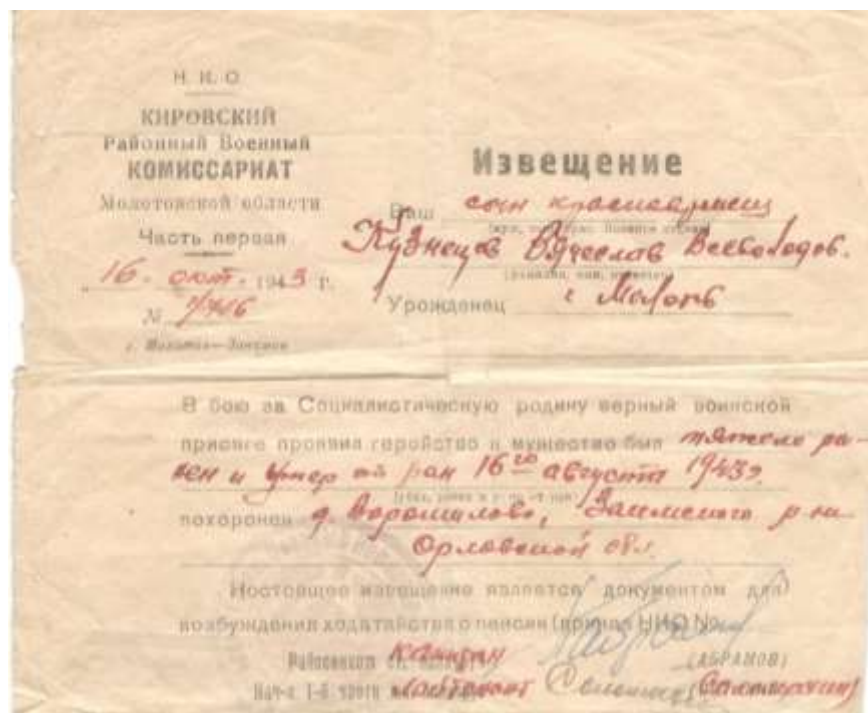 Н. К. О.
КИРОВСКИЙ
Районный Военный
КОМИССАРИАТ
Молотовской области
Часть первая
16. окт. 1943 г.
№
г. Молотов—Закамск
Извещение
Ваш сын красноармеец
Кузнецов Вячеслав Всеволодов.
(фамилия, имя, отчество)
Уроженец г. Молотов
В бою за Социалистическую родину верный воинской
присяге проявив геройство и мужество был тяжело ра-
нен и умер от ран 16го августа 1943г.
похоронен д. Ворошилово, р-на
Орловской обл.
Настоящее извещение является документом для
возбуждения ходатайства о пенсии (приказ НКО №
Райвоенком капитан (АБРАМОВ)
Нач-к 1-й части лейтенант